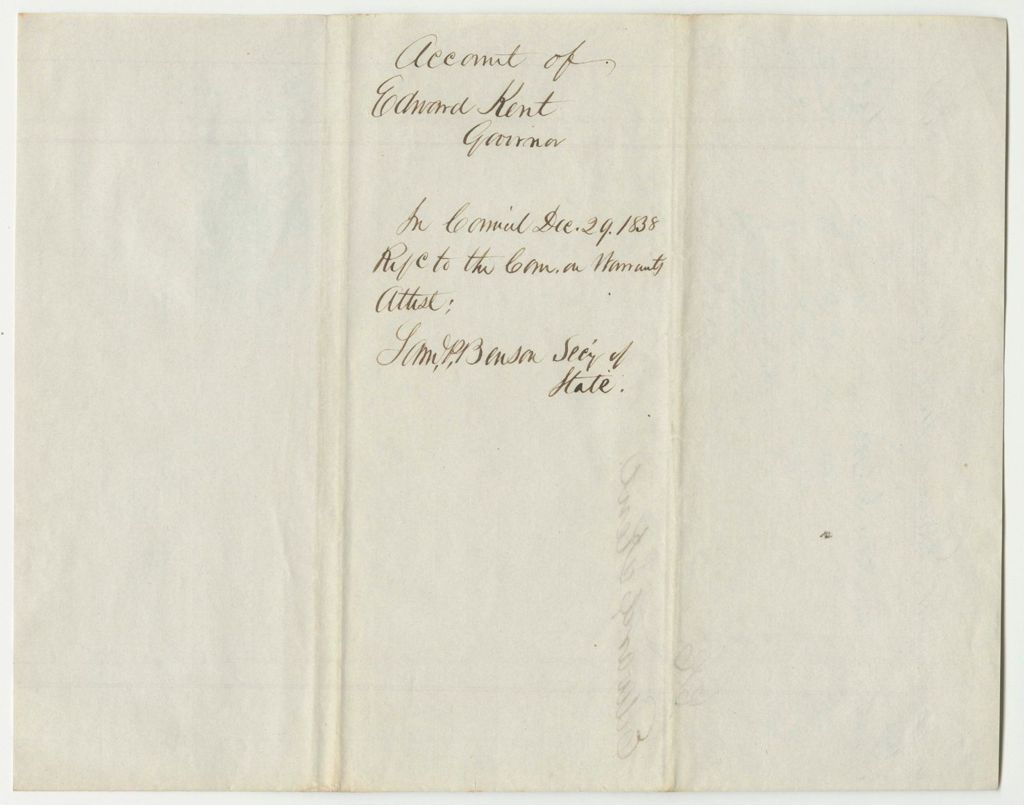 Account of
Edward Kent
Governor
In Council Dec. 29. 1838
Ref.c to the Com. on Warrants
Attest;
Saml. P. Benson Sec'y of
State.